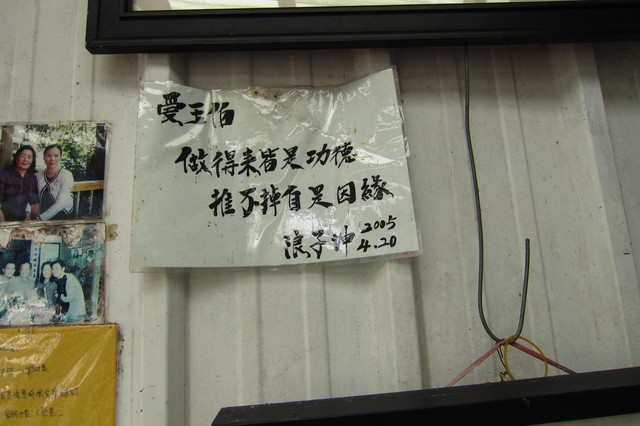 愛玉伯
做得來皆是功德
推不掉自是因緣
浪子坤 2005
4.20